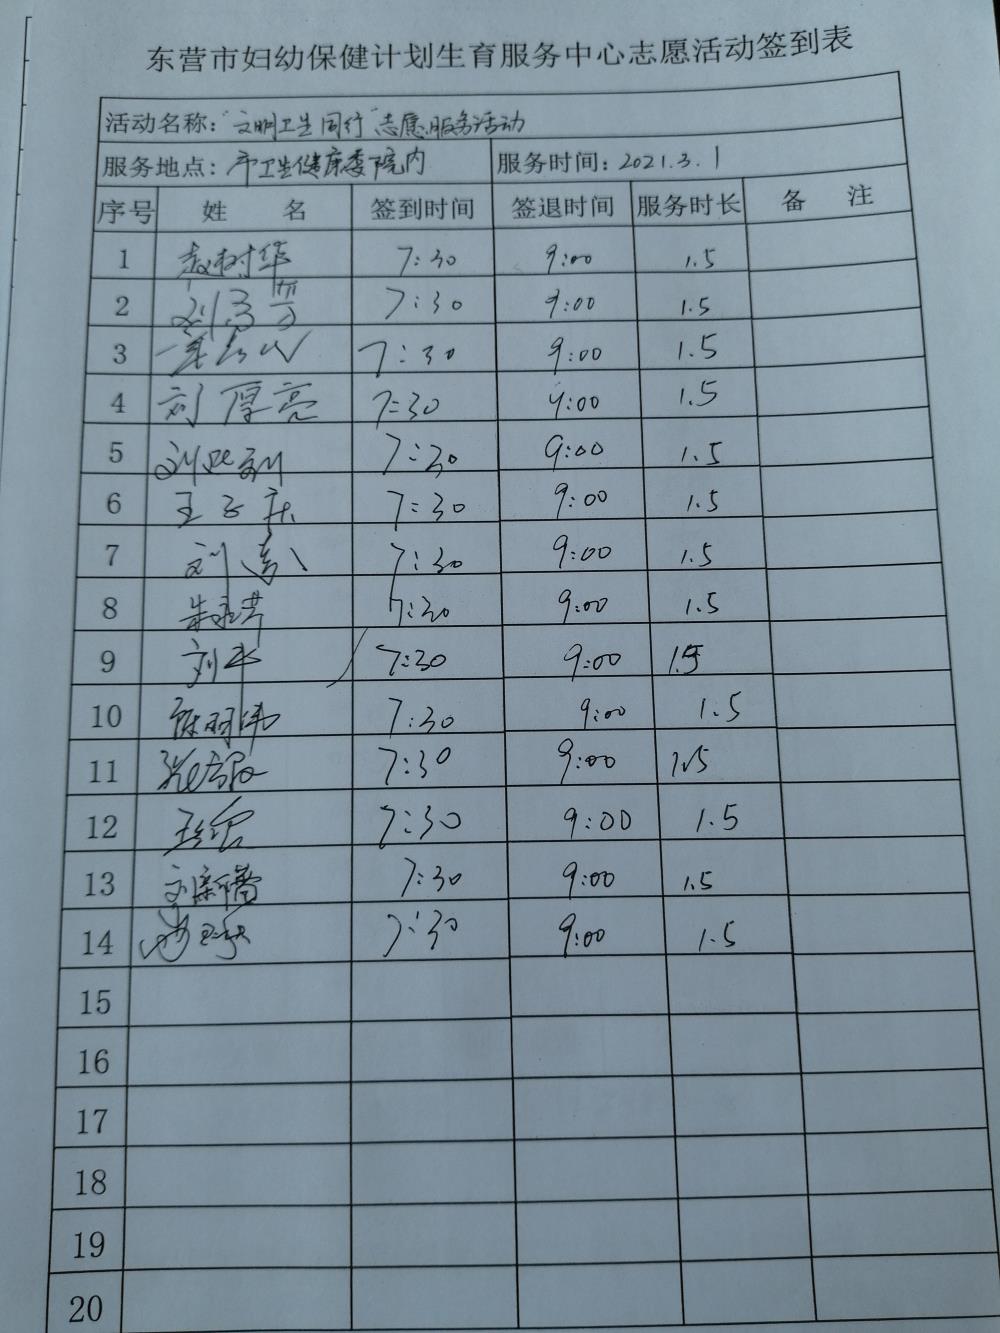 东营市妇幼保健计划生育服务中心志愿活动签到表
活动名称：“文明卫生同行”志愿服务活动
服务地点：市卫生健康委院内 服务时间：2021.3.1
序号 姓 名 签到时间 签退时间 服务时长 备 注
1 7:30 9:00 1.5
2 7:30 9:00 1.5
3 7:30 9:00 1.5
4 刘厚亮 7:30 9:00 1.5
5 7:30 9:00 1.5
6 7:30 9:00 1.5
7 7:30 9:00 1.5
8 7:30 9:00 1.5
9 7:30 9:00 1.5
10 7:30 9:00 1.5
11 7:30 9:00 1.5
12 7:30 9:00 1.5
13 7:30 9:00 1.5
14 7:30 9:00 1.5
15
16
17
18
19
20